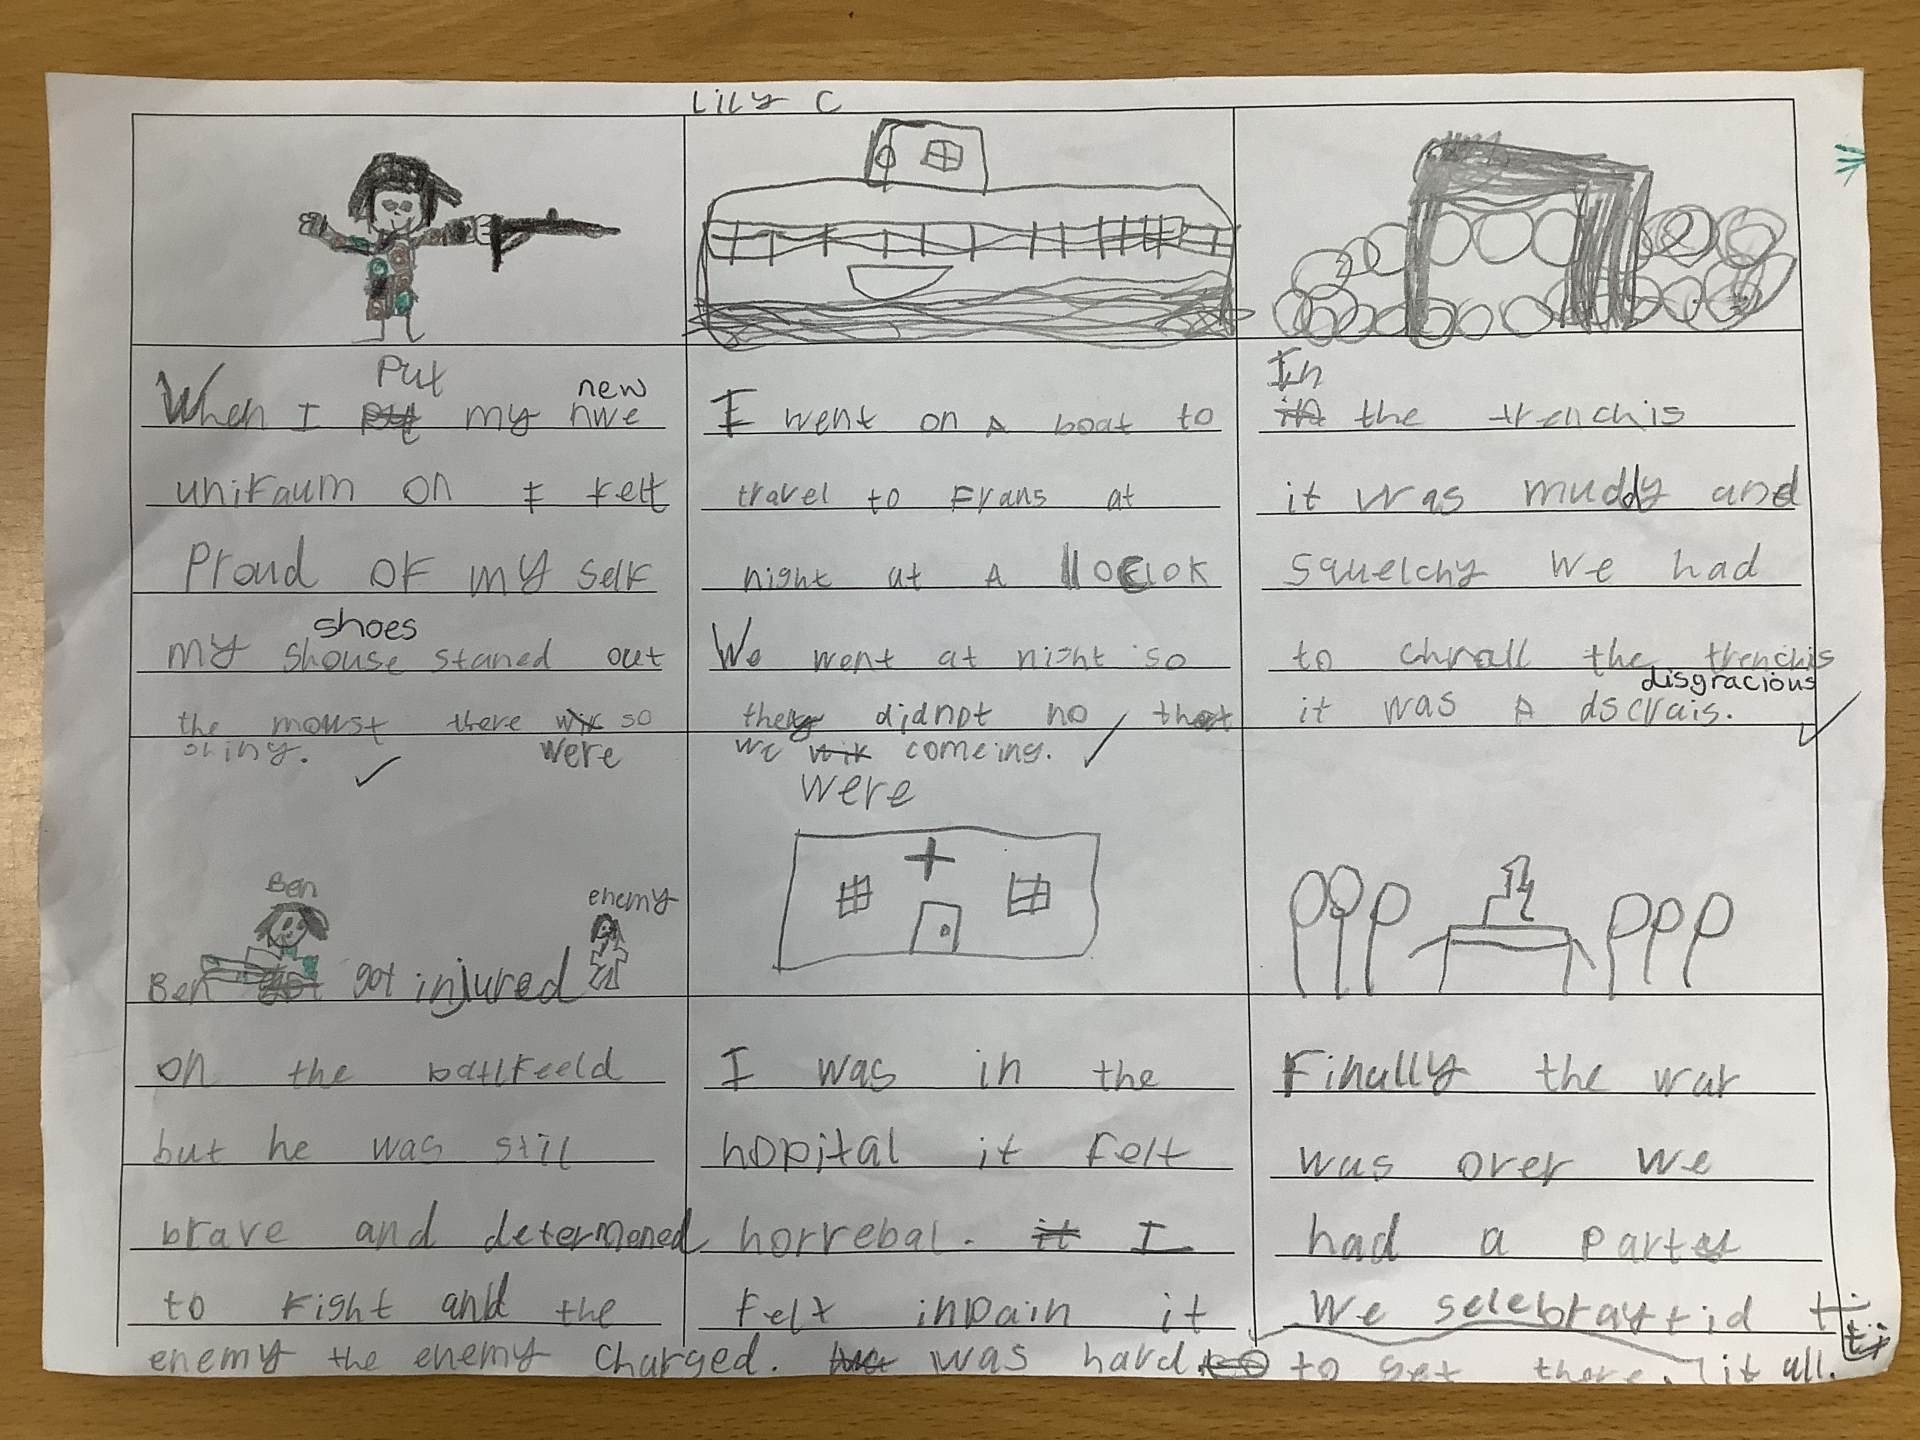 Lily C
Put
new
When I put my nwe
unifaum on I felt
Proud of my self
shoes
my shouse staned out
the moust there wir so
shiny.
were
I went on A boat to
travel to Frans at
night at A 11 oclok
We went at night so
they didnot no that
we wir comeing.
were
In
in the trenchis
it was muddy and
squelchy we had
to chrall the trenchis
disgracious
it was A dscrais.
Ben
enemy
Ben got got injured
on the batlfeeld
but he was still
brave and determened
to fight and the
enemy the enemy charged.
I was in the
hopital it felt
horrebal. it I
felt inpain it
was hard to to get there.
Finally the war
was over we
had a party
We selebraytid
it all.